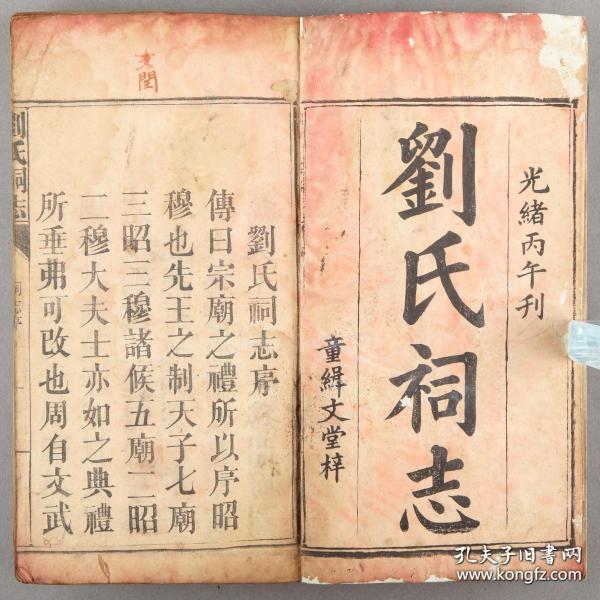 光緒丙午刊
劉氏祠志
童緝文堂梓
文閏
劉氏祠志序
傳曰宗廟之禮所以序昭
穆也先王之制天子七廟
三昭三穆諸候五廟二昭
二穆大夫士亦如之典禮
所垂弗可改也周自文武
劉氏祠志
孔夫子旧书网
www.kongfz.com